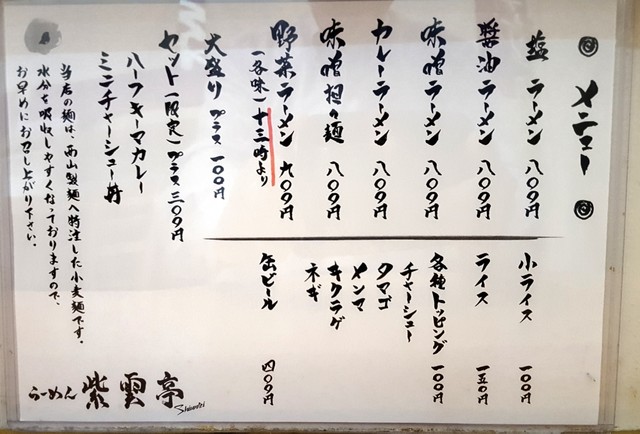 メニュー
塩ラーメン 八〇〇円
醤油ラーメン 八〇〇円
味噌ラーメン 八〇〇円
カレーラーメン 八〇〇円
味噌担々麺 八〇〇円
野菜ラーメン 九〇〇円
(各味) 十三時より
大盛り プラス 一〇〇円
セット(限定) プラス 三〇〇円
ハーフキーマカレー
ミニチャーシュー丼
小ライス 一〇〇円
ライス 一五〇円
各種トッピング 一〇〇円
チャーシュー
タマゴ
メンマ
キクラゲ
ネギ
缶ビール 四〇〇円
当店の麺は、西山製麺へ特注した小麦麺です。
水分を吸収しやすくなっておりますので、
お早めにお召し上がり下さい。
らーめん 紫雲亭